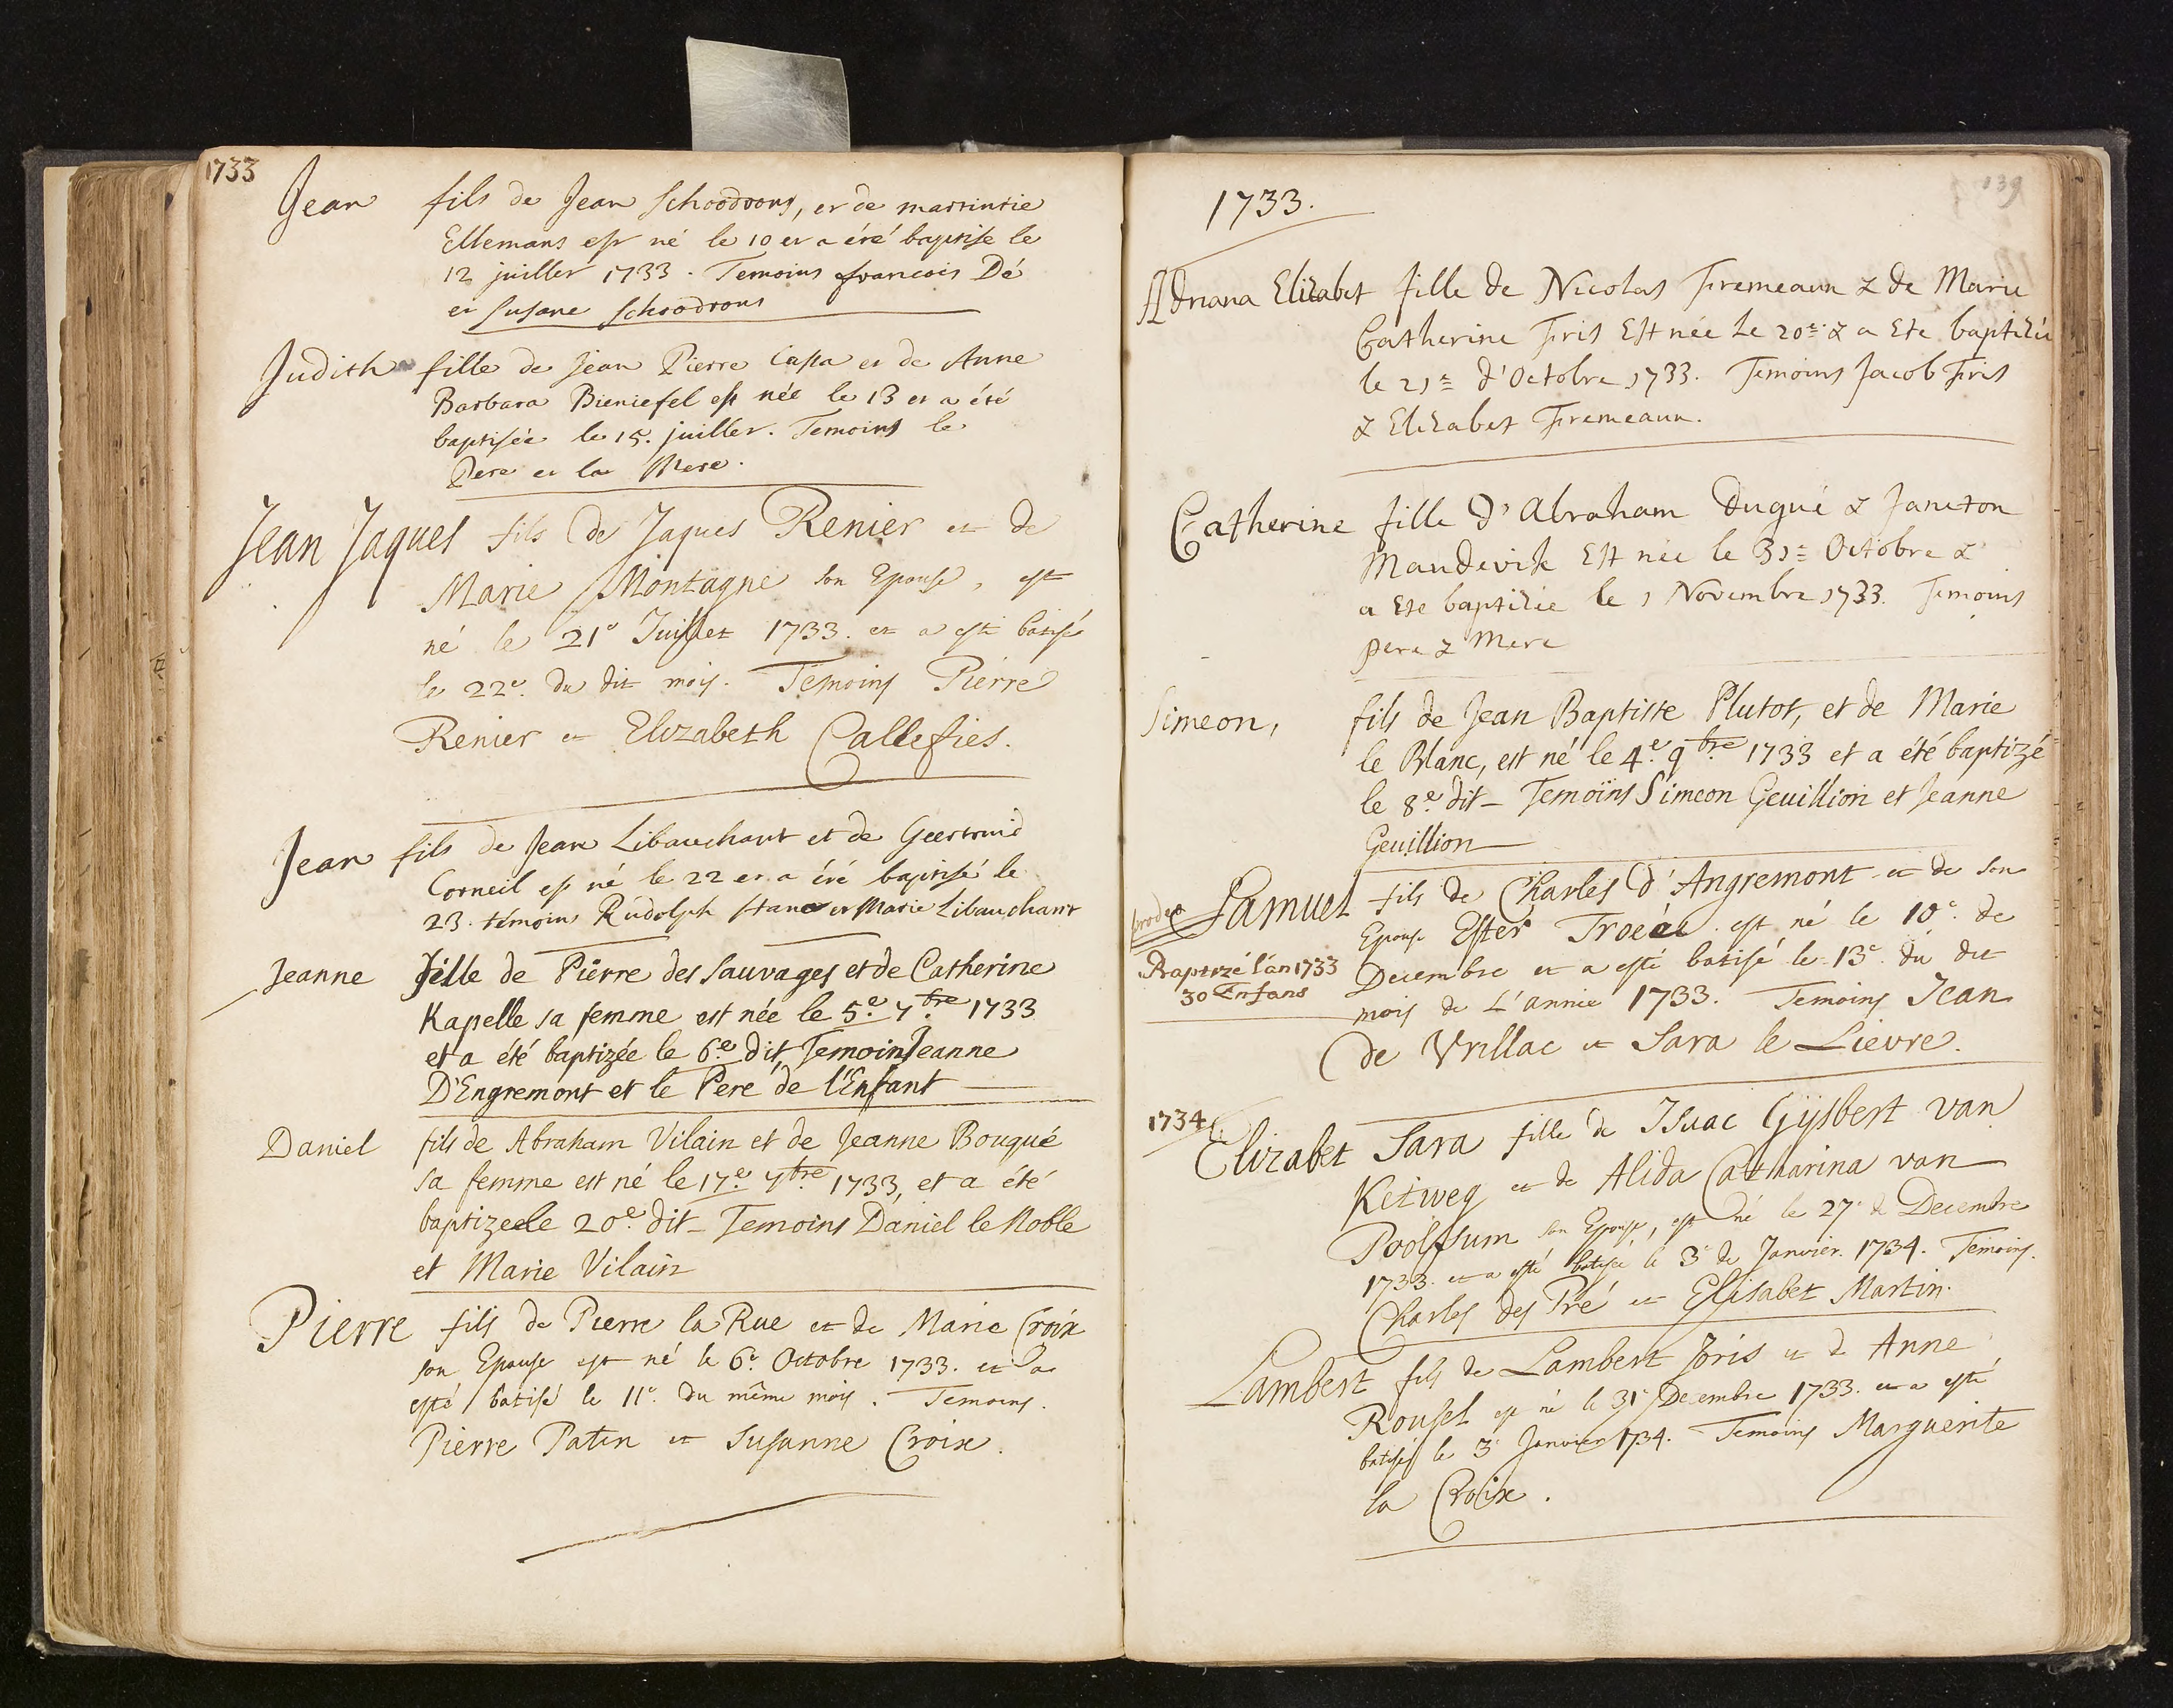 1733
Jean fils de Jean Schoodrons, et de martintie
Ellemans est né le 10 et a été baptise le
12 juillet 1733. Temoins francois Dé
et Susane Schoodrons
Judith fille de Jean Pierre Cassa et de Anne
Barbara Bieniefel est née le 13 et a été
baptisée le 15. juillet. Temoins le
Pere et la Mere.
Jean Jaques fils de Jaques Renier et de
Marie Montagne son Epouse, est
né le 21e Juillet 1733. et a esté batisé
le 22e. du dit mois. Temoins Pierre
Renier et Elizabeth Callefies.
Jean fils de Jean Libauchant et de Geertruid
Corneil est né le 22 et a été baptisé le
23. temoins Rudolph et Marie Libauchant
Jeanne fille de Pierre des Sauvages et de Catherine
Kapelle sa femme est née le 5.e 7.bre 1733
et a été baptizée le 6.e dit, Temoin Jeanne
D'Engremont et le Pere de l'Enfant
Daniel fils de Abraham Vilain et de Jeanne Bouqué
sa femme est né le 17.e 7bre 1733, et a été
baptizé le 20.e dit Temoins Daniel le Noble
et Marie Vilain
Pierre fils de Pierre la Rue et de Marie Croix
son Epouse est né le 6e. Octobre 1733. et a
esté batisé le 11e. du même mois. Temoins.
Pierre Patin et Susanne Croix.
139
1733.
Adriana Elizabet fille de Nicolas Fremeaux & de Marie
Catherine Fris Est née Le 20e & a Ete baptizée
le 21e d'Octobre 1733. Temoins Jacob Fris
& Elizabet Fremeaux.
Catherine fille d'Abraham Dugué & Janeton
Mandevik Est née le 31e Octobre &
a Ete baptizée le 1 Novembre 1733. Temoins
pere & Mere
Simeon, fils de Jean Baptiste Plutot, et de Marie
le Blanc, est né le 4.e 9.bre 1733 et a été baptizé
le 8.e dit – Temoins Simeon Geuillion et Jeanne
Geuillion
Samuel fils de Charles d'Angremont et de son
Epouse Ester est né le 10e. de
Decembre et a esté batisé le 13e. du dit
mois de L'année 1733. Temoins Jean
de Vrillac et Sara le Lievre.
Baptizé l'an 1733
30 Enfans
1734
Elizabet Sara fille de Isaac Gijsbert van
Ketweg et de Alida Catharina van
Poolsum son Epouse, est né le 27e de Decembre
1733. et a esté batisé le 3e de Janvier. 1734. Temoins.
Charles des Pré et Elisabet Martin.
Lambert fils de Lambert Joris et de Anne
Rousel est né le 31e Decembre 1733. et a esté
batisé le 3e Janvier 1734. Temoins Marguerite
la Croix.